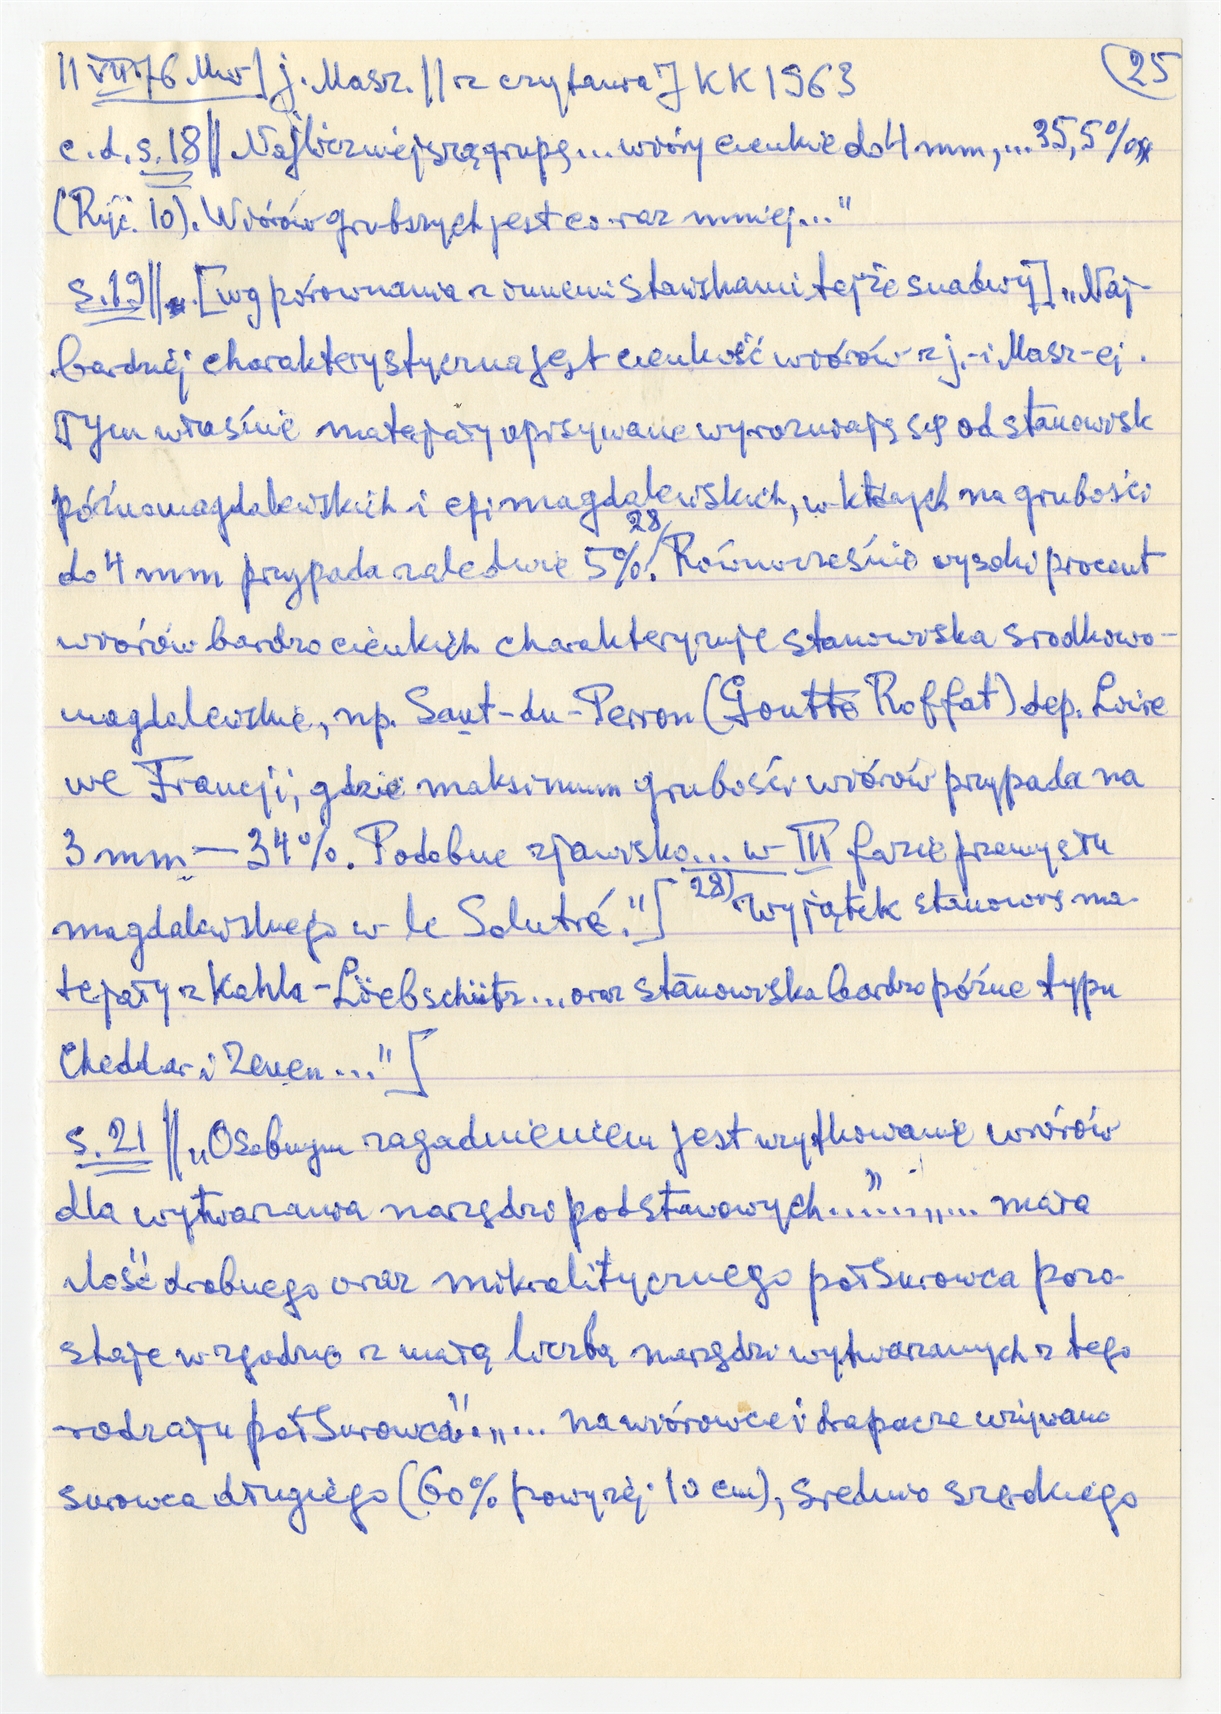 11 VII 76 Mw] j. Masz. || z czytania J KK 1963 (25
c.d. s. 18 || Najliczniejszą grupę... wióry cienkie do 4 mm, ... 35,5%
(Ryc. 10). Wiórów grubszych jest co raz mniej..."
s. 19 || [wg porównania z innemi stanowiskami tejże ] „Naj-
bardziej charakterystyczna jest cienkość wiórów z j.-i Masz-ej.
Tym właśnie materjały opisywane wyrózniają się od stanowisk
późnomagdaleńskich i epimagdaleńskich, w których na grubości
do 4 mm przypada zaledwie 5%.28/ Równocześnie wysoki procent
wiórów bardzo cienkich charakteryzuje stanowiska środkowo-
magdaleńskie, np. Saut-du-Perron (Goutte Roffat) dep. Loire
we Francji, gdzie maksimum grubości wiórów przypada na
3 mm – 34%. Podobne zjawisko... w III fazie przemysłu
magdaleńskiego w le Solutré."] 28) Wyjątek stanowią ma-
terjały z Kahla-Löebschütz... oraz stanowiska bardzo późne typu
Cheddar i Zeven..."]
s. 21 || „Osobnym zagadnieniem jest użytkowanie wiórów
dla wytwarzania narzędzi podstawowych......" „... mała
ilość drobnego oraz mikrolitycznego półsurowca pozo-
staje w zgodzie z małą liczbą narzędzi wytwarzanych z tego
rodzaju półsurowca". „... na wiórowce i drapacze używano
surowca długiego (60% powyżej 10 cm), średnio szerokiego